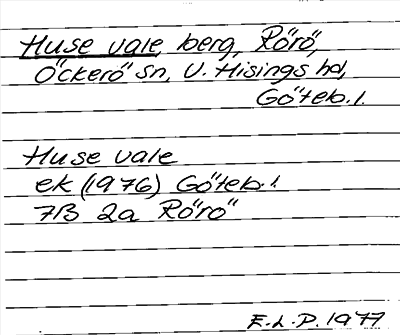 Huse vale, berg, Rörö,
Öckerö sn, V. Hisings hd,
Göteb. l.
Huse vale
ek (1976) Göteb. l.
7B 2a Rörö
E.L.P. 1977